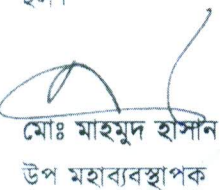 মোঃ মাহমুদ হাসান
উপ মহাব্যবস্থাপক